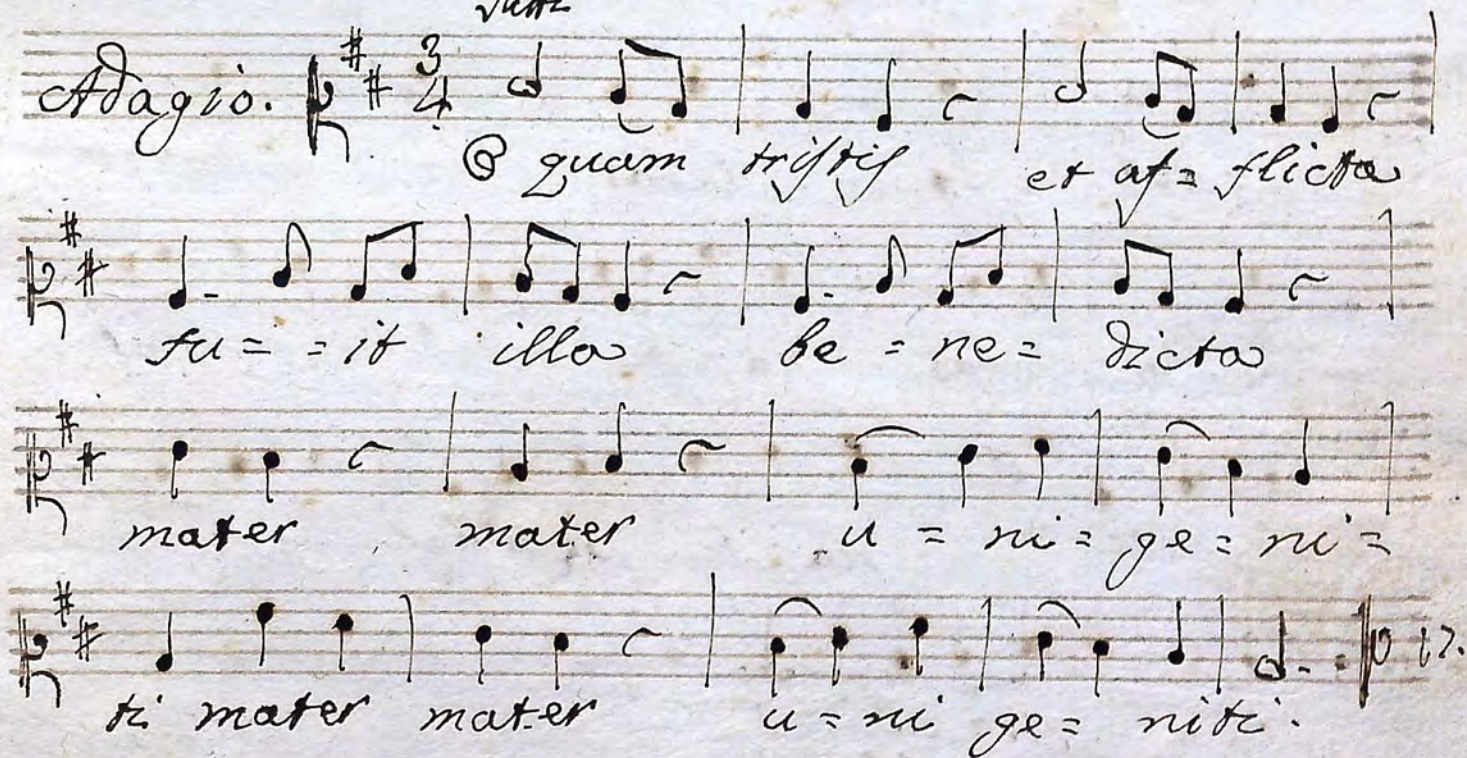 Tutti
Adagio. 3 4
O quam tristis et af= flicta
fu= =it illa be =ne= dicta
mater mater u = ni= ge= ni=
ti mater mater u=ni ge= niti.